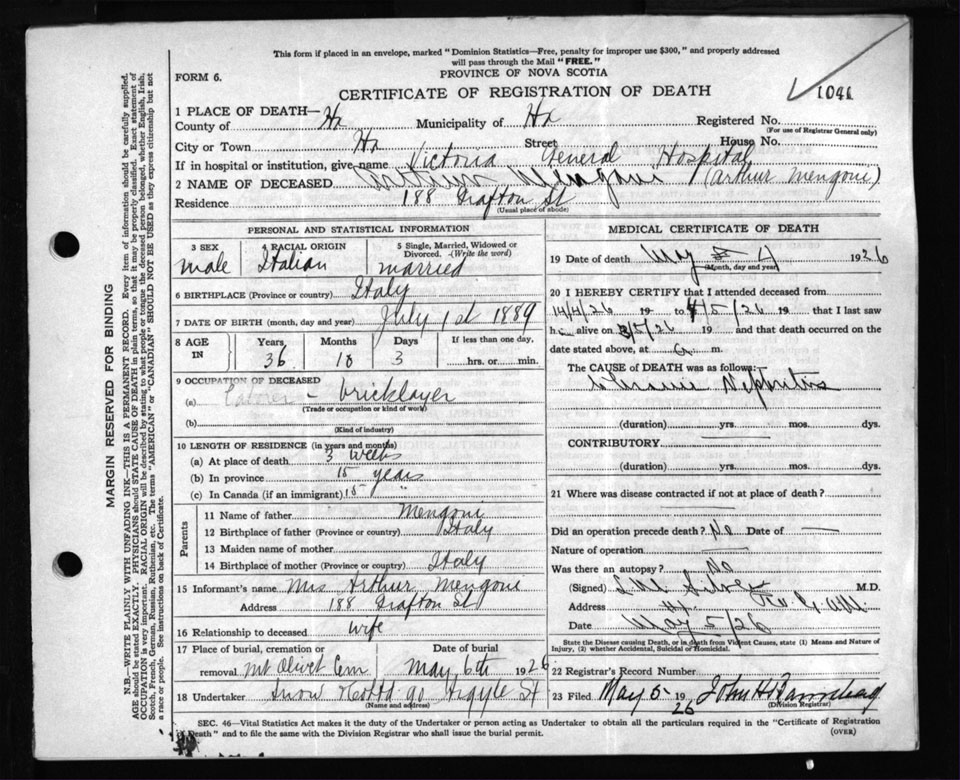 This form if placed in an envelope, marked "Dominion Statistics—Free, penalty for improper use $300," and properly addressed
will pass through the Mail "FREE."
FORM 6.
PROVINCE OF NOVA SCOTIA
CERTIFICATE OF REGISTRATION OF DEATH
1041
1 PLACE OF DEATH—
County of Hx Municipality of Hx Registered No.
(For use of Registrar General only)
City or Town Hx Street House No.
If in hospital or institution, give name Victoria General Hospital
2 NAME OF DECEASED Arthur Mengoni (Arthur Mengoni)
Residence 188 Grafton St
(Usual place of abode)
PERSONAL AND STATISTICAL INFORMATION
3 SEX
male
4 RACIAL ORIGIN
Italian
5 Single, Married, Widowed or Divorced. -(Write the word)
married
6 BIRTHPLACE (Province or country) Italy
7 DATE OF BIRTH (month, day and year) July 1st 1889
8 AGE IN
Years 36
Months 10
Days 3
If less than one day.
hrs. or min.
9 OCCUPATION OF DECEASED
(a) bricklayer
(Trade or occupation or kind of work)
(b)
(Kind of industry)
10 LENGTH OF RESIDENCE (in years and months)
(a) At place of death 3 weeks
(b) In province 15 years
(c) In Canada (if an immigrant) 15 "
Parents
11 Name of father Mengoni
12 Birthplace of father (Province or country) Italy
13 Maiden name of mother
14 Birthplace of mother (Province or country) Italy
15 Informant's name Mrs Arthur Mengoni
Address 188 Grafton St
16 Relationship to deceased wife
17 Place of burial, cremation or removal Mt Olivet Cem
Date of burial
May 6th 1926
18 Undertaker Snow 90 Argyle St
(Name and address)
MEDICAL CERTIFICATE OF DEATH
19 Date of death May 4 1926
(Month, day and year)
20 I HEREBY CERTIFY that I attended deceased from
14/4/26 19 to 4/5/26 19 that I last saw
h alive on 3/5/26 19 and that death occurred on
date stated above, at a m.
The CAUSE OF DEATH was as follows:
Chronic Nephritis
(duration) yrs. mos. dys.
CONTRIBUTORY
(duration) yrs. mos. dys.
21 Where was disease contracted if not at place of death?
Did an operation precede death? No Date of —
Nature of operation —
Was there an autopsy? No
(Signed) Silver M.D.
Address Hx
Date May 5/26
State the Disease causing Death, or in death from Violent Causes, state (1) Means and Nature of Injury, (2) whether Accidental, Suicidal or Homicidal.
22 Registrar's Record Number
23 Filed May 5 1926 John H
(Division Registrar)
SEC. 46—Vital Statistics Act makes it the duty of the Undertaker or person acting as Undertaker to obtain all the particulars required in the "Certificate of Registration
of Death" and to file the same with the Division Registrar who shall issue the burial permit.
(OVER)
MARGIN RESERVED FOR BINDING
N.B.—WRITE PLAINLY WITH UNFADING INK—THIS IS A PERMANENT RECORD. Every item of information should be carefully supplied.
AGE should be stated EXACTLY. PHYSICIANS should STATE CAUSE OF DEATH in plain terms, so that it may be properly classified. Exact statement of
OCCUPATION is very important. RACIAL ORIGIN will be described by stating to what people or tongue the deceased person belonged, whether English, Irish,
Scotch, French, German, Russian, Ruthenian, etc. The terms "AMERICAN" or "CANADIAN" SHOULD NOT BE USED as they express citizenship but not
a race or people. See instructions on back of Certificate.